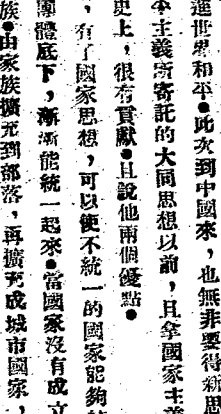 進世界和平●此次到中國來，也無非要得新思
本主義所寄託的大同思想以前，且拿國家主義
史上，很有貢獻●且說他兩個優點●
，有了國家思想，可以使不統一的國家能夠
團體底下，漸漸能統一起來●當國家沒有成立
族●由家族擴充到部落，再擴充成城市國家，